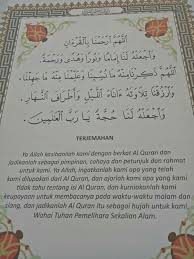 اَللّٰهُمَّ ارْحَمْنَا بِالْقُرْءَانِ
وَاجْعَلْهُ لَنَا إِمَامًا وَنُورًا وَهُدًى وَرَحْمَةً.
اَللّٰهُمَّ ذَكِّرْنَا مِنْهُ مَا نُسِّينَا وَعَلِّمْنَا مِنْهُ مَا جَهِلْنَا.
وَارْزُقْنَا تِلَاوَتَهُ ءَانَاءَ اللَّيْلِ وَأَطْرَافَ النَّهَارِ.
وَاجْعَلْهُ لَنَا حُجَّةً يَا رَبَّ الْعَالَمِينَ.
TERJEMAHAN
Ya Allah kasihanilah kami dengan berkat Al Quran dan
jadikanlah sebagai pimpinan, cahaya dan petunjuk dan rahmat
untuk kami. Ya Allah, ingatkanlah kami apa yang telah
kami dilupakan dari Al Quran, dan ajarlah kami apa yang kami
tidak tahu tentang isi Al Quran, dan kurniakanlah kami
keupayaan untuk membacanya pada waktu-waktu malam dan
siang, dan jadikanlah Al Quran itu sebagai hujah untuk kami,
Wahai Tuhan Pemelihara Sekalian Alam.